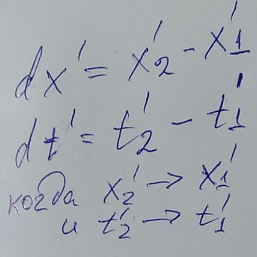 dx' = x'2 - x'1
dt' = t'2 - t'1
когда x'2 → x'1
и t'2 → t'1